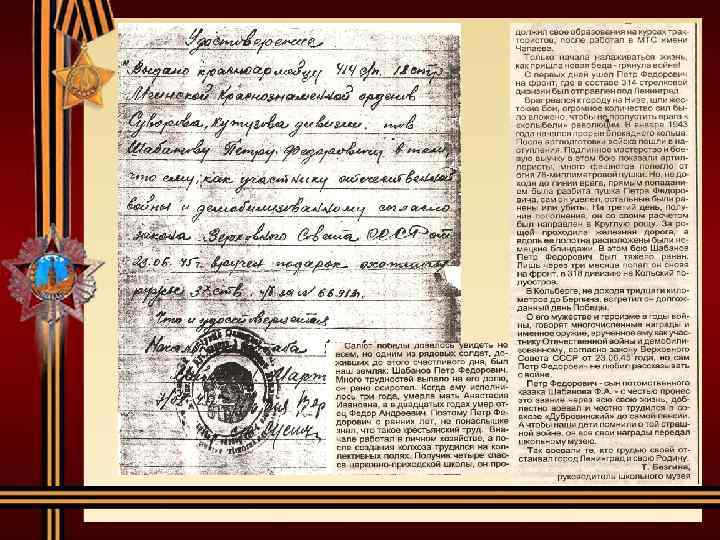 Удостоверение
"Выдано красноармейцу 414 с/п. 18 стр.
Мгинской Краснознаменной орденов
Суворова, Кутузова дивизии. тов
Шабанову Петру Федоровичу в том,
что ему, как участнику отечественной
войны и демобилизованному согласно
закона Верховного Совета СССР от
23.06.45г. вручен подарок охотничье
ружье
Что и удостоверяется
Салют победы довелось увидеть не
всем, но одним из рядовых солдат, до-
живших до этого счастливого дня, был
наш земляк: Шабанов Петр Федорович.
Много трудностей выпало на его долю,
он рано осиротел. Когда ему исполни-
лось три года, умерла мать Анастасия
Ивановна, а в двадцатых годах умер от-
ец Федор Андреевич. Поэтому Петр Фе-
дорович с ранних лет, не понаслышке
знал, что такое крестьянский труд. Вна-
чале работал в личном хозяйстве, а по-
сле создания колхоза трудился на кол-
лективных полях. Получив четыре клас-
са церковно-приходской школы, он про-
должил свое образования на курсах трак-
тористов, после работал в МТС имени
Чапаева.
Только начала налаживаться жизнь,
как пришла новая беда - грянула война!
С первых дней ушел Петр Федорович
на фронт, где в составе 314 стрелковой
дивизии был отправлен под Ленинград.
Враг рвался к городу на Неве, шли жес-
токие бои, огромное количество сил бы-
ло вложено, чтобы не пропустить врага к
«колыбели» революции. В январе 1943
года начался прорыв блокадного кольца.
После артподготовки войска пошли в на-
ступления. Подлинное мастерство и бое-
вую выучку в этом бою показали артил-
леристы, много фашистов полегло от
огня 76-миллиметровой пушки. Но, не до-
ходя до линии врага, прямым попадани-
ем была разбита пушка Петра Федоро-
вича, сам он уцелел, остальные были ра-
нены или убиты. На третий день, полу-
чив пополнения, он со своим расчетом
был направлен в Круглую рощу. За ро-
щей проходила железная дорога, а
вдоль ее полотна расположены были не-
мецкие блиндажи. В этом бою Шабанов
Петр Федорович был тяжело ранен.
Лишь через три месяца попал он снова
на фронт, в 318 дивизию на Кольский по-
луостров.
В Кольберге, не доходя тридцати кило-
метров до Берлина, встретил он долгож-
данный день Победы.
О его мужестве и героизме в годы вой-
ны, говорят многочисленные награды и
именное оружие, врученное ему как учас-
тнику Отечественной войны и демобили-
зованному, согласно закону Верховного
Совета СССР от 23.06.45 года, но сам
Петр Федорович не любил рассказывать
о войне.
Петр Федорович - сын потомственного
казака Шабанова Ф.А. - с честью пронес
это звание через всю свою жизнь, доб-
лестно воевал и честно трудился в со-
вхозе «Дубровинский» до самой пенсии.
А чтобы наши дети помнили о той страш-
ной войне, он все свои награды передал
школьному музею.
Так воевали те, кто грудью своей от-
стаивал город Ленинград и свою Родину.
Т. Безгина,
руководитель школьного музея